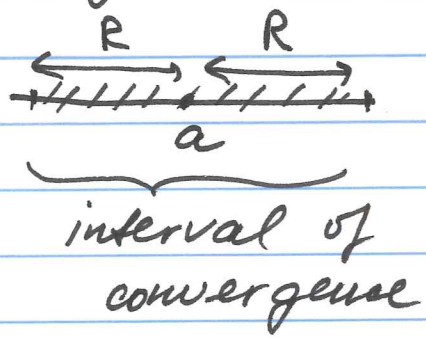 R R
a
interval of
convergence